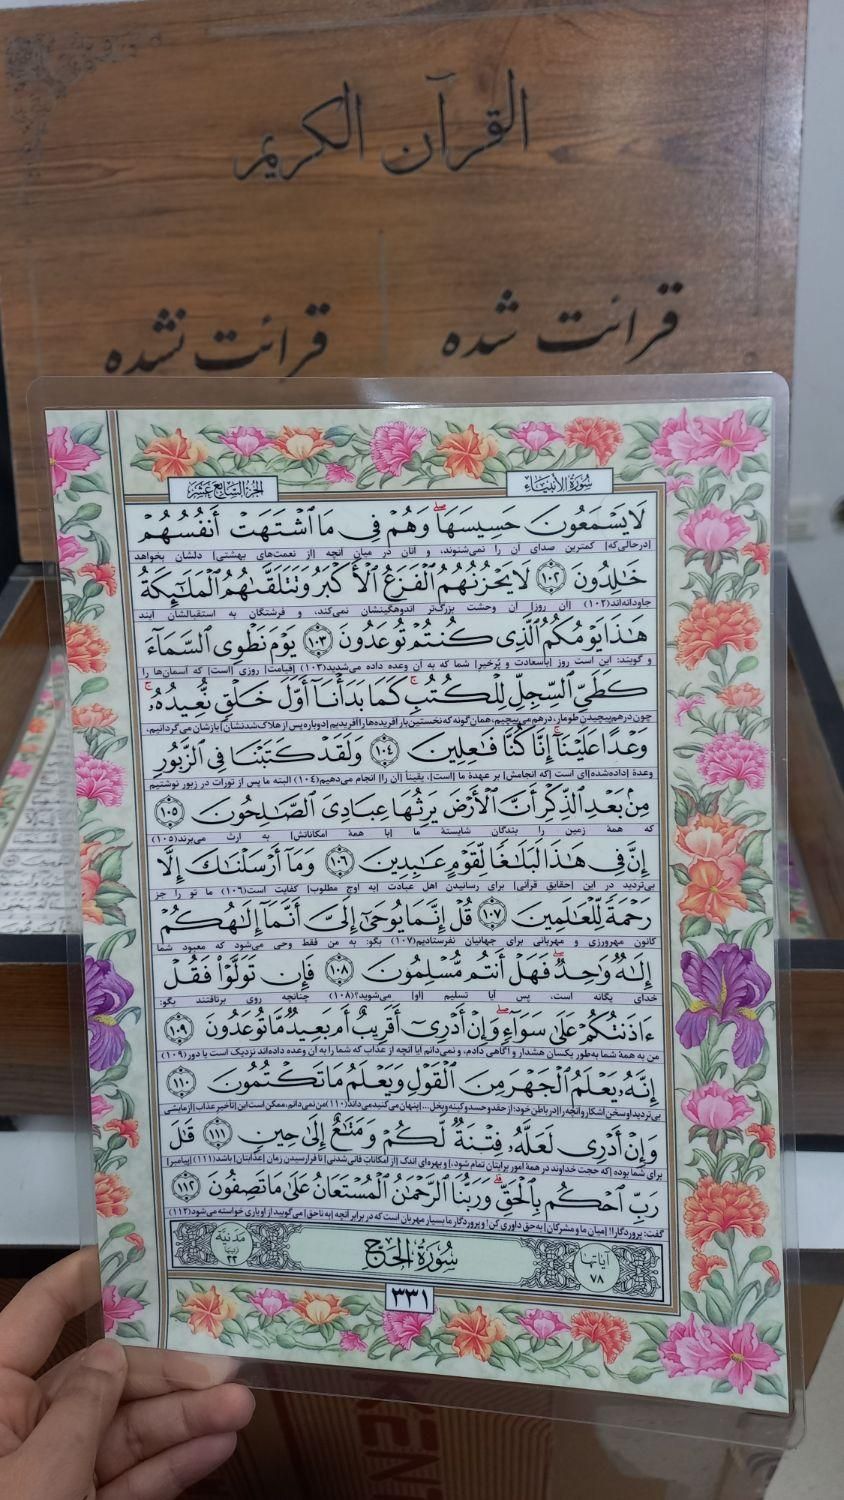 القرآن الكريم
قرائت شده
قرائت نشده
سُورَةُ الأنبيَاء
الجزء السابع عشر
لَا يَسْمَعُونَ حَسِيسَهَا ۖ وَهُمْ فِي مَا اشْتَهَتْ أَنفُسُهُمْ
[درحالی‌که] کمترین صدای آن را نمی‌شنوند، و آنان در میان آنچه [از نعمت‌های بهشتی] دلشان بخواهد
خَالِدُونَ ۱۰۲ لَا يَحْزُنُهُمُ الْفَزَعُ الْأَكْبَرُ وَتَتَلَقَّاهُمُ الْمَلَائِكَةُ
جاودانه‌اند(۱۰۲) [آن روز] آن وحشت بزرگ‌تر اندوهگینشان نمی‌کند، و فرشتگان به استقبالشان آیند
هَٰذَا يَوْمُكُمُ الَّذِي كُنتُمْ تُوعَدُونَ ۱۰۳ يَوْمَ نَطْوِي السَّمَاءَ
و گویند: این است روز [باسعادت و پُرخیرِ] شما که به آن وعده داده می‌شدید(۱۰۳) [قیامت] روزی [است] که آسمان‌ها را
كَطَيِّ السِّجِلِّ لِلْكُتُبِ ۚ كَمَا بَدَأْنَا أَوَّلَ خَلْقٍ نُّعِيدُهُ ۚ
چون درهم پیچیدنِ طومار، درهم می‌پیچیم، همان‌گونه که نخستین بار آفریده‌ها را آفریدیم [دوباره پس از هلاک شدنشان] بازشان می‌گردانیم،
وَعْدًا عَلَيْنَا ۚ إِنَّا كُنَّا فَاعِلِينَ ۱۰۴ وَلَقَدْ كَتَبْنَا فِي الزَّبُورِ
وعدهٔ [داده‌شده] ای است [که انجامش] بر عهدهٔ ما [است]، یقیناً [آن را] انجام می‌دهیم(۱۰۴) البته ما پس از تورات در زبور نوشتیم
مِن بَعْدِ الذِّكْرِ أَنَّ الْأَرْضَ يَرِثُهَا عِبَادِيَ الصَّالِحُونَ ۱۰۵
که همهٔ زمین را بندگان شایستهٔ ما [با همهٔ امکاناتش] به ارث می‌برند(۱۰۵)
إِنَّ فِي هَٰذَا لَبَلَاغًا لِّقَوْمٍ عَابِدِينَ ۱۰۶ وَمَا أَرْسَلْنَاكَ إِلَّا
بی‌تردید در این [حقایق قرآنی] برای رسانیدن اهل عبادت [به اوج مطلوب] کفایت است(۱۰۶) ما تو را جز
رَحْمَةً لِّلْعَالَمِينَ ۱۰۷ قُلْ إِنَّمَا يُوحَىٰ إِلَيَّ أَنَّمَا إِلَٰهُكُمْ
کانون مهرورزی و مهربانی برای جهانیان نفرستادیم(۱۰۷) بگو: به من فقط وحی می‌شود که معبود شما
إِلَٰهٌ وَاحِدٌ ۖ فَهَلْ أَنتُم مُّسْلِمُونَ ۱۰۸ فَإِن تَوَلَّوْا فَقُلْ
خدای یگانه است، پس آیا تسلیم [او] می‌شوید؟(۱۰۸) چنانچه روی برتافتند بگو:
ءَاذَنتُكُمْ عَلَىٰ سَوَاءٍ ۖ وَإِنْ أَدْرِي أَقَرِيبٌ أَم بَعِيدٌ مَّا تُوعَدُونَ ۱۰۹
من به همهٔ شما به‌طور یکسان هشدار و آگاهی دادم، و نمی‌دانم آیا آنچه از عذاب که شما را به آن وعده داده‌اند نزدیک است یا دور(۱۰۹)
إِنَّهُ يَعْلَمُ الْجَهْرَ مِنَ الْقَوْلِ وَيَعْلَمُ مَا تَكْتُمُونَ ۱۱۰
بی‌تردید او سخن آشکار و آنچه را [در باطن خود؛ از حقد و حسد و کینه و بخل...] پنهان می‌کنید می‌داند(۱۱۰) من نمی‌دانم، ممکن است این [تأخیر عذاب] آزمایشی
وَإِنْ أَدْرِي لَعَلَّهُ فِتْنَةٌ لَّكُمْ وَمَتَاعٌ إِلَىٰ حِينٍ ۱۱۱ قَالَ
برای شما بوده [که حجت خداوند در همهٔ امور برایتان تمام شود،] و بهره‌ای اندک [از امکانات فانی‌شدنی] تا فرارسیدن زمان [عذابتان] باشد(۱۱۱) [پیامبر]
رَبِّ احْكُم بِالْحَقِّ ۗ وَرَبُّنَا الرَّحْمَٰنُ الْمُسْتَعَانُ عَلَىٰ مَا تَصِفُونَ ۱۱۲
گفت: پروردگارا! [میان ما و مشرکان] به حق داوری کن! و پروردگار ما بسیار مهربان است که در برابر آنچه [به ناحق] می‌گویید از او یاری خواسته می‌شود(۱۱۲)
آياتها ۷۸
سُورَةُ الحَجّ
مدنية
۳۳۱
KEN